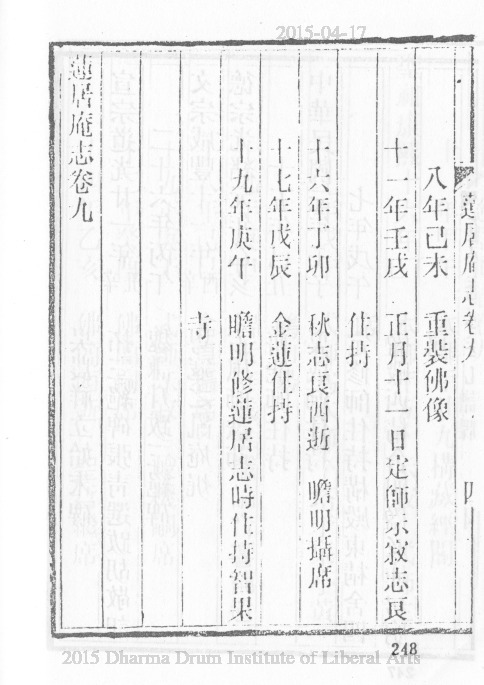 2015-04-17
蓮居庵志卷九 四
八年己未 重裝佛像
十一年壬戌 正月十一日定師示寂志良
住持
十六年丁卯 秋志良西逝 瞻明攝席
十七年戊辰 金蓮住持
十九年庚午 瞻明修蓮居志時住持智果
寺
蓮居庵志卷九
248
2015 Dharma Drum Institute of Liberal Arts